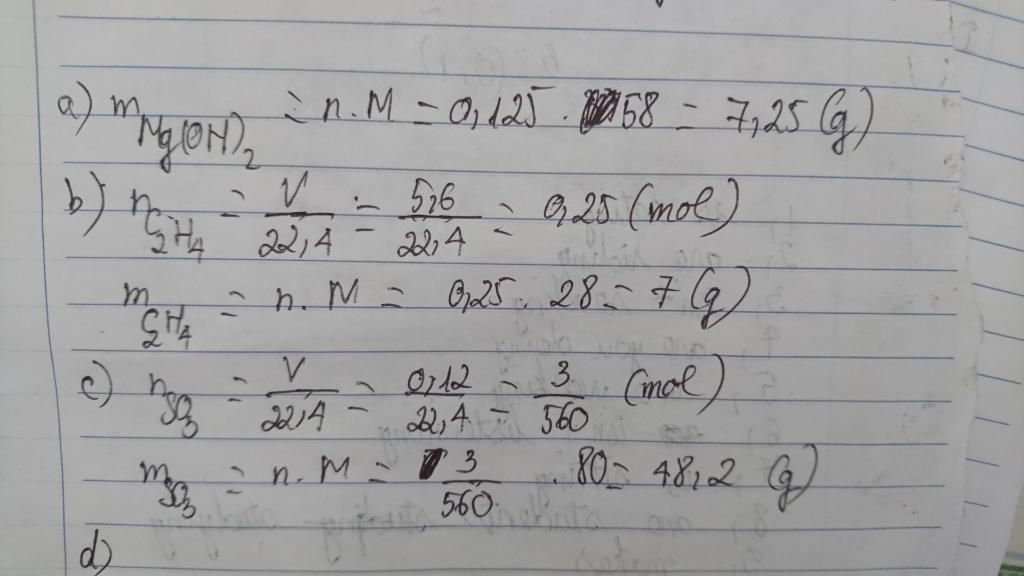 a) m Mg(OH)₂ = n.M = 0,125 . 58 = 7,25 (g)
b) n C₂H₄ = V/22,4 = 5,6/22,4 = 0,25 (mol)
m C₂H₄ = n.M = 0,25 . 28 = 7 (g)
c) n SO₃ = V/22,4 = 0,12/22,4 = 3/560 (mol)
m SO₃ = n.M = 3/560 . 80 = 48,2 (g)
d)